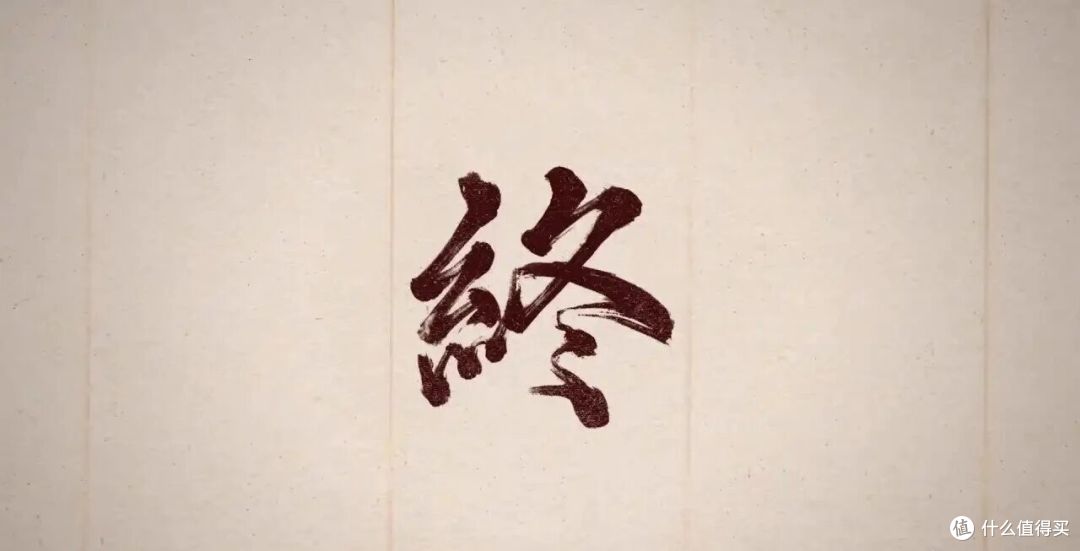 終
值 什么值得买